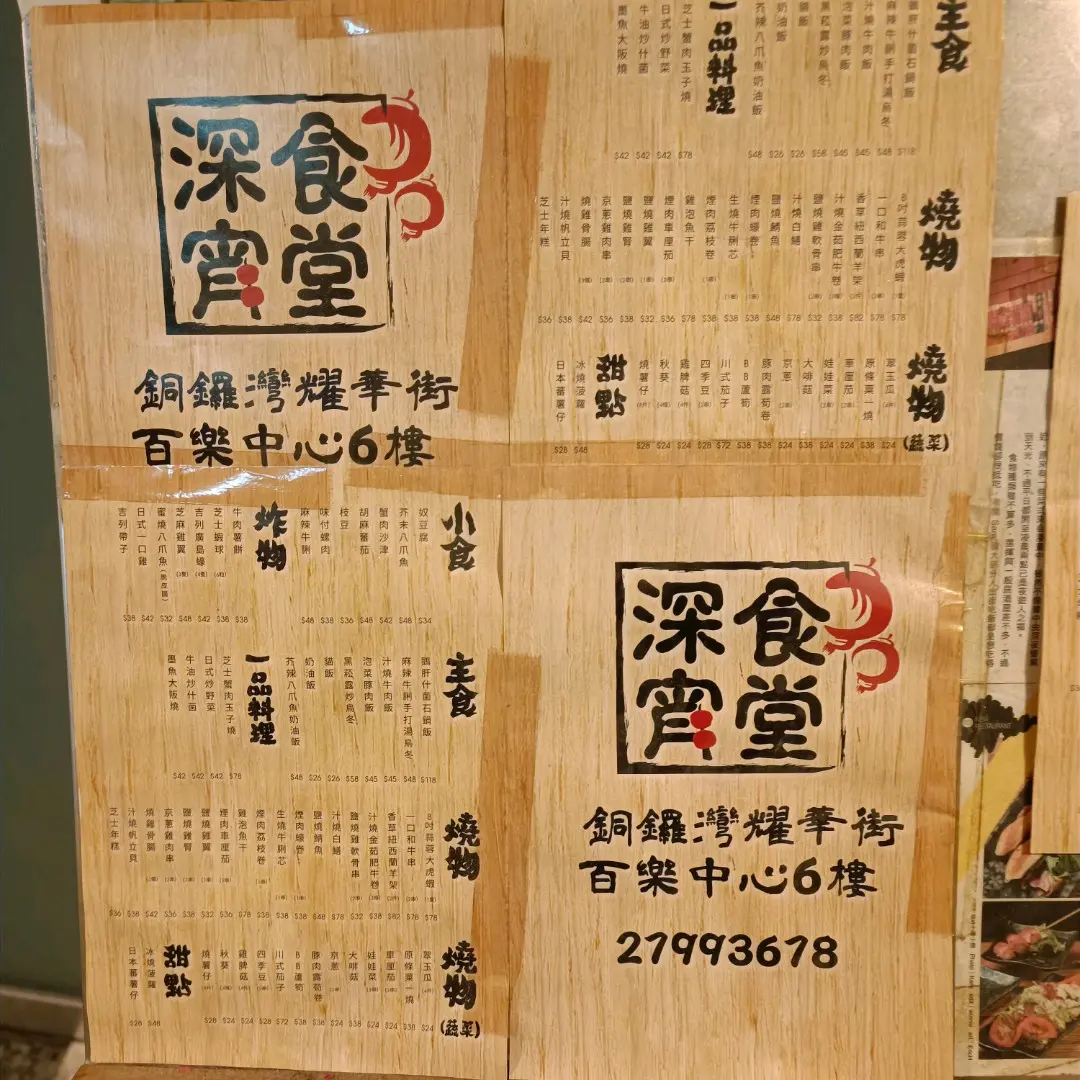 深宵食堂
銅鑼灣耀華街
百樂中心6樓
主食
鵝肝什菌石鍋飯 $118
麻辣牛脷手打湯烏冬 $48
汁燒牛肉飯 $45
泡菜豚肉飯 $45
黑菘露炒烏冬 $58
鍋飯 $26
奶油飯 $26
芥辣八爪魚奶油飯 $48
一品料理
芝士蟹肉玉子燒 $78
日式炒野菜 $42
牛油炒什菌 $42
墨魚大阪燒 $42
燒物
8吋蒜蓉大虎蝦 $78
一口和牛串 $78
香草紐西蘭羊架 $82
汁燒金茹肥牛卷 $38
鹽燒雞軟骨串 $32
汁燒白鱔 $78
鹽燒鯖魚 $48
煙肉蠔卷 $38
生燒牛脷芯 $38
煙肉荔枝卷 $38
雞泡魚干 $78
煙肉車厘茄 $36
鹽燒雞翼 $32
鹽燒雞腎 $38
京蔥雞肉串 $36
燒雞骨腸 $42
汁燒帆立貝 $38
芝士年糕 $36
燒物(蔬菜)
翠玉瓜 $24
原條粟一燒 $38
車厘茄 $24
娃娃菜 $24
大啡菇 $38
京蔥 $24
豚肉露荀卷 $38
BB蘆筍 $38
川式茄子 $72
四季豆 $28
雞脾菇 $24
秋葵 $24
燒薯仔 $28
甜點
冰燒菠蘿 $48
日本蕃薯仔 $28
小食
奴豆腐 $34
芥末八爪魚 $48
蟹肉沙津 $42
胡麻蕃茄 $48
枝豆 $36
味付螺肉 $38
麻辣牛脷 $48
炸物
牛肉薯餅 $38
芝士蝦球 $38
吉列廣島蠔 $42
芝麻雞翼 $48
蜜燒八爪魚(脆皮腸) $32
日式一口雞 $42
吉列帶子 $38
主食
鵝肝什菌石鍋飯 $118
麻辣牛脷手打湯烏冬 $48
汁燒牛肉飯 $45
泡菜豚肉飯 $45
黑菘露炒烏冬 $58
貓飯 $26
奶油飯 $26
芥辣八爪魚奶油飯 $48
一品料理
芝士蟹肉玉子燒 $78
日式炒野菜 $42
牛油炒什菌 $42
墨魚大阪燒 $42
燒物
8吋蒜蓉大虎蝦 $78
一口和牛串 $78
香草紐西蘭羊架 $82
汁燒金茹肥牛卷 $38
鹽燒雞軟骨串 $32
汁燒白鱔 $78
鹽燒鯖魚 $48
煙肉蠔卷 $38
生燒牛脷芯 $38
煙肉荔枝卷 $38
雞泡魚干 $78
煙肉車厘茄 $36
鹽燒雞翼 $32
鹽燒雞腎 $38
京蔥雞肉串 $36
燒雞骨腸 $42
汁燒帆立貝 $38
芝士年糕 $36
燒物(蔬菜)
翠玉瓜 $24
原條粟一燒 $38
車厘茄 $24
娃娃菜 $24
大啡菇 $38
京蔥 $24
豚肉露荀卷 $38
BB蘆筍 $38
川式茄子 $72
四季豆 $28
雞脾菇 $24
秋葵 $24
燒薯仔 $28
甜點
冰燒菠蘿 $48
日本蕃薯仔 $28
深宵食堂
銅鑼灣耀華街
百樂中心6樓
27993678